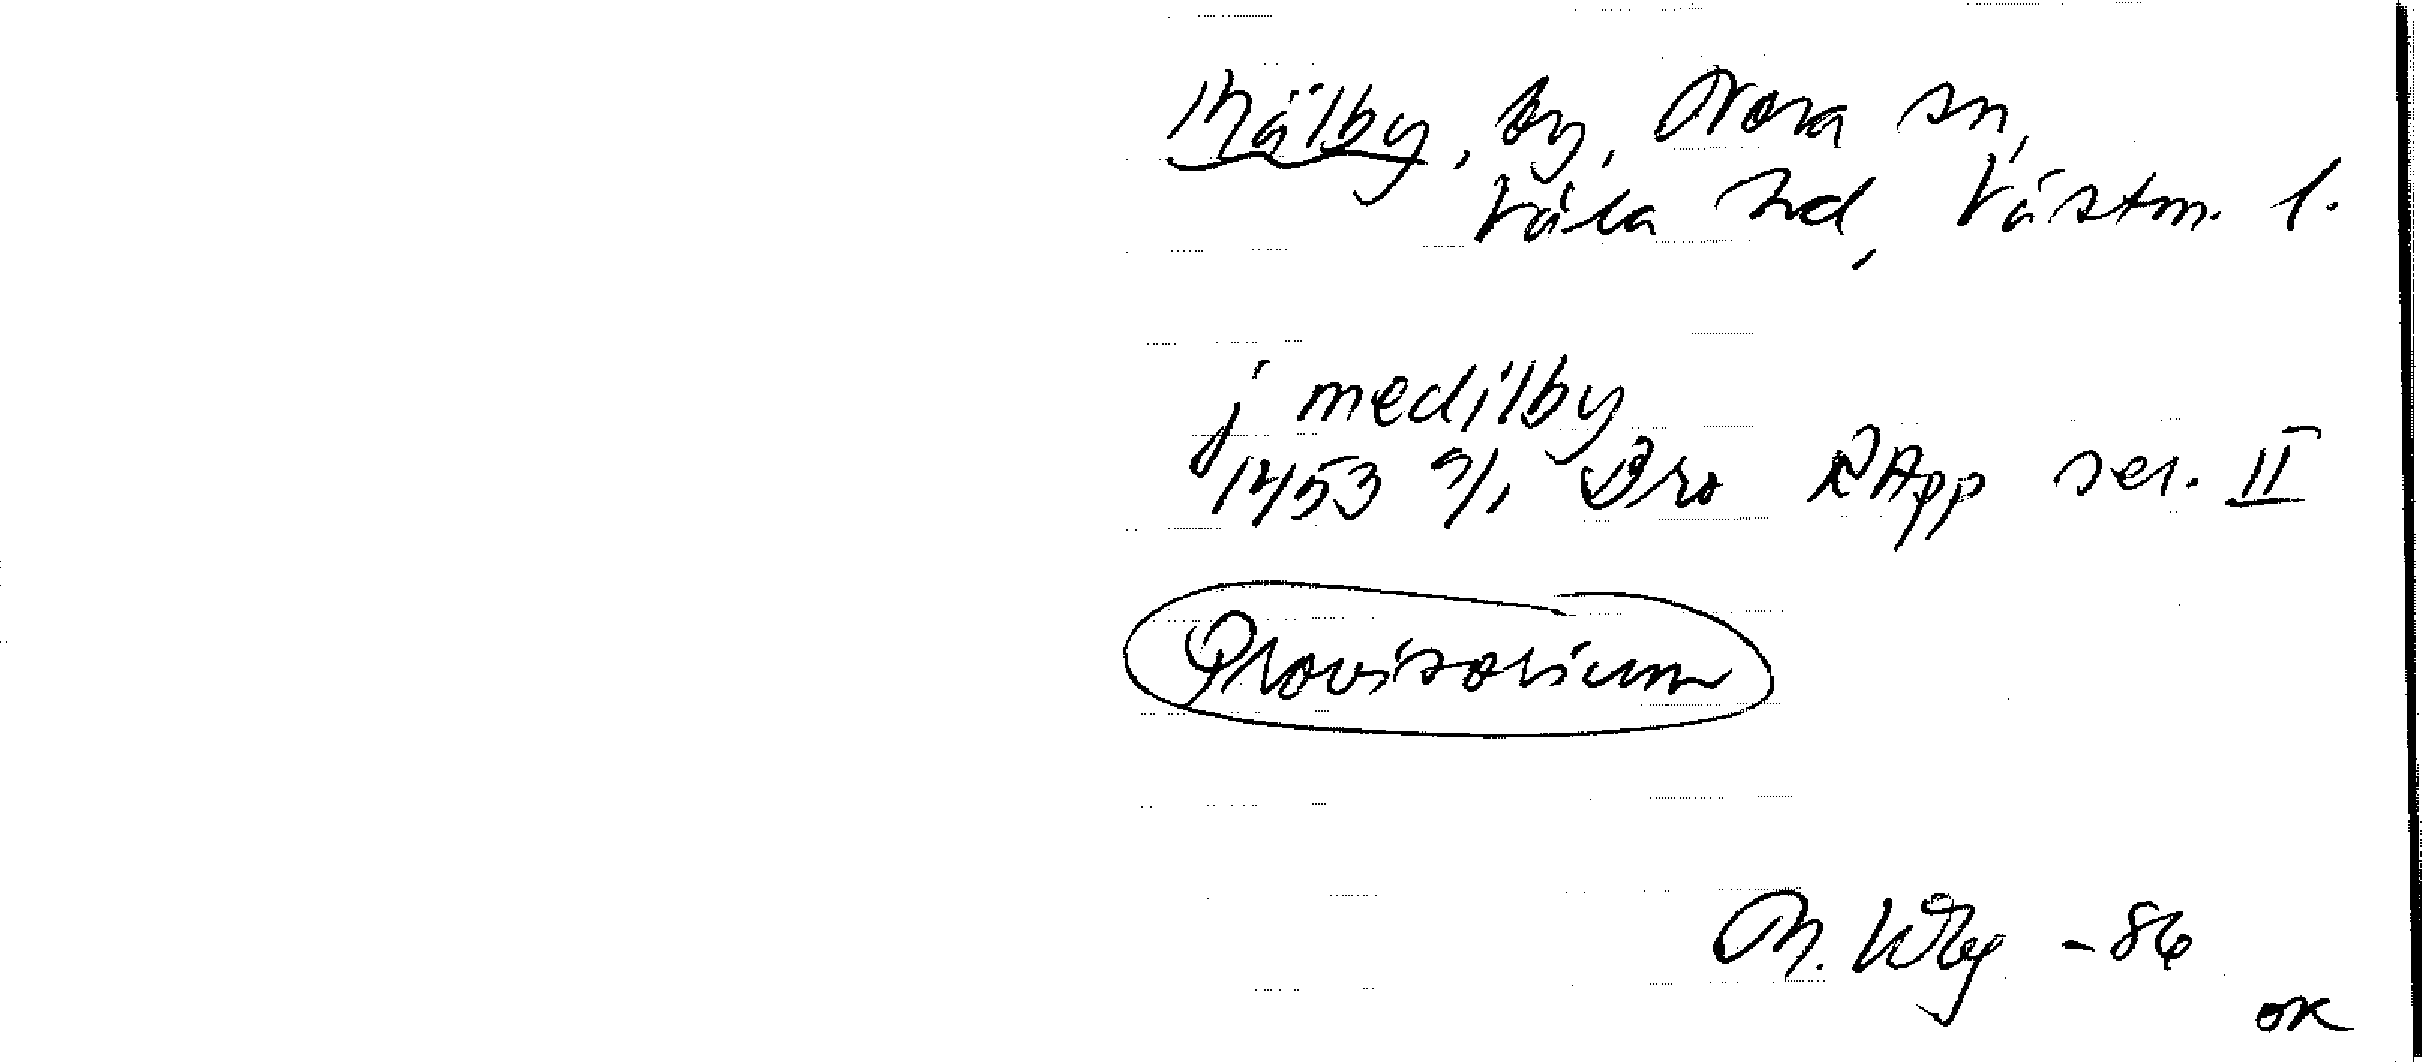 Mälby, by, Nora sn,
Våla hd, Västm. l.
j medilby
1453 9/1 Bro RApp ser. II
Provisorium
M. Wbg -86
OK